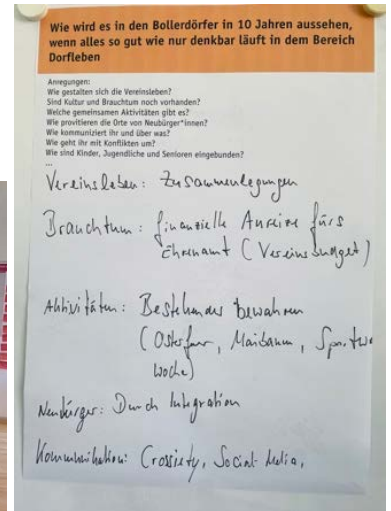 Wie wird es in den Bollerdörfer in 10 Jahren aussehen,
wenn alles so gut wie nur denkbar läuft in dem Bereich
Dorfleben
Anregungen:
Wie gestalten sich die Vereinsleben?
Sind Kultur und Brauchtum noch vorhanden?
Welche gemeinsamen Aktivitäten gibt es?
Wie provitieren die Orte von Neubürger*innen?
Wie kommuniziert ihr und über was?
Wie geht ihr mit Konflikten um?
Wie sind Kinder, Jugendliche und Senioren eingebunden?
...
Vereinsleben: Zusammenlegungen
Brauchtum: finanzielle Anreize fürs
Ehrenamt (Vereinsbudget)
Aktivitäten: Bestehendes bewahren
(Osterfeuer, Maibaum, Sportwo
woche)
Neubürger: Durch Integration
Kommunikation: Crossiety, Social Media,